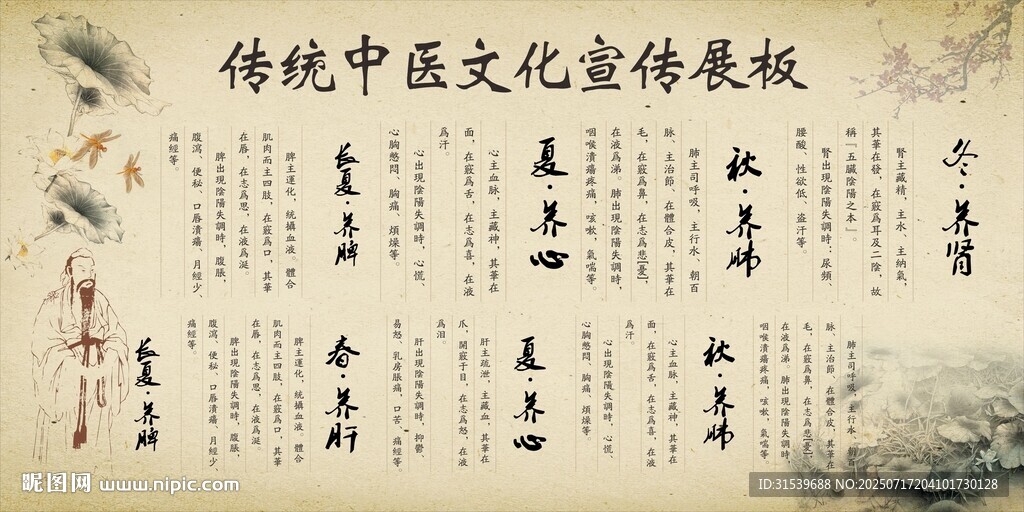 传统中医文化宣传展板
冬·养肾
腎主藏精，主水、主納氣，
其華在發，在竅爲耳及二陰，故
稱『五臟陰陽之本』。
腎出現陰陽失調時：尿頻、
腰酸、性欲低、盜汗等。
秋·养肺
肺主司呼吸，主行水、朝百
脉、主治節、在體合皮，其華在
毛，在竅爲鼻，在志爲悲[憂]，
在液爲涕。肺出現陰陽失調時，
咽喉潰瘍疼痛，咳嗽，氣喘等。
夏·养心
心主血脉，主藏神，其華在
面，在竅爲舌，在志爲喜，在液
爲汗。
心出現陰陽失調時，心慌、
心胸憋悶、胸痛、煩燥等。
长夏·养脾
脾主運化，統攝血液。體合
肌肉而主四肢，在竅爲口，其華
在唇，在志爲思，在液爲涎。
脾出現陰陽失調時，腹脹，
腹瀉、便秘、口唇潰瘍、月經少、
痛經等。
肺主司呼吸，主行水、朝百
脉、主治節、在體合皮，其華在
毛，在竅爲鼻，在志爲悲[憂]，
在液爲涕。肺出現陰陽失調時，
咽喉潰瘍疼痛，咳嗽，氣喘等。
秋·养肺
心主血脉，主藏神，其華在
面，在竅爲舌，在志爲喜，在液
爲汗。
心出現陰陽失調時，心慌、
心胸憋悶、胸痛、煩燥等。
夏·养心
肝主疏泄，主藏血，其華在
爪，開竅于目，在志爲怒，在液
爲泪
肝出現陰陽失調時，抑鬱、
易怒、乳房脹痛，口苦、痛經等。
春·养肝
脾主運化，統攝血液。體合
肌肉而主四肢，在竅爲口，其華
在唇，在志爲思，在液爲涎。
脾出現陰陽失調時，腹脹，
腹瀉、便秘、口唇潰瘍、月經少、
痛經等。
长夏·养脾
昵图网 www.nipic.com
ID:31539688 NO:20250717204101730128